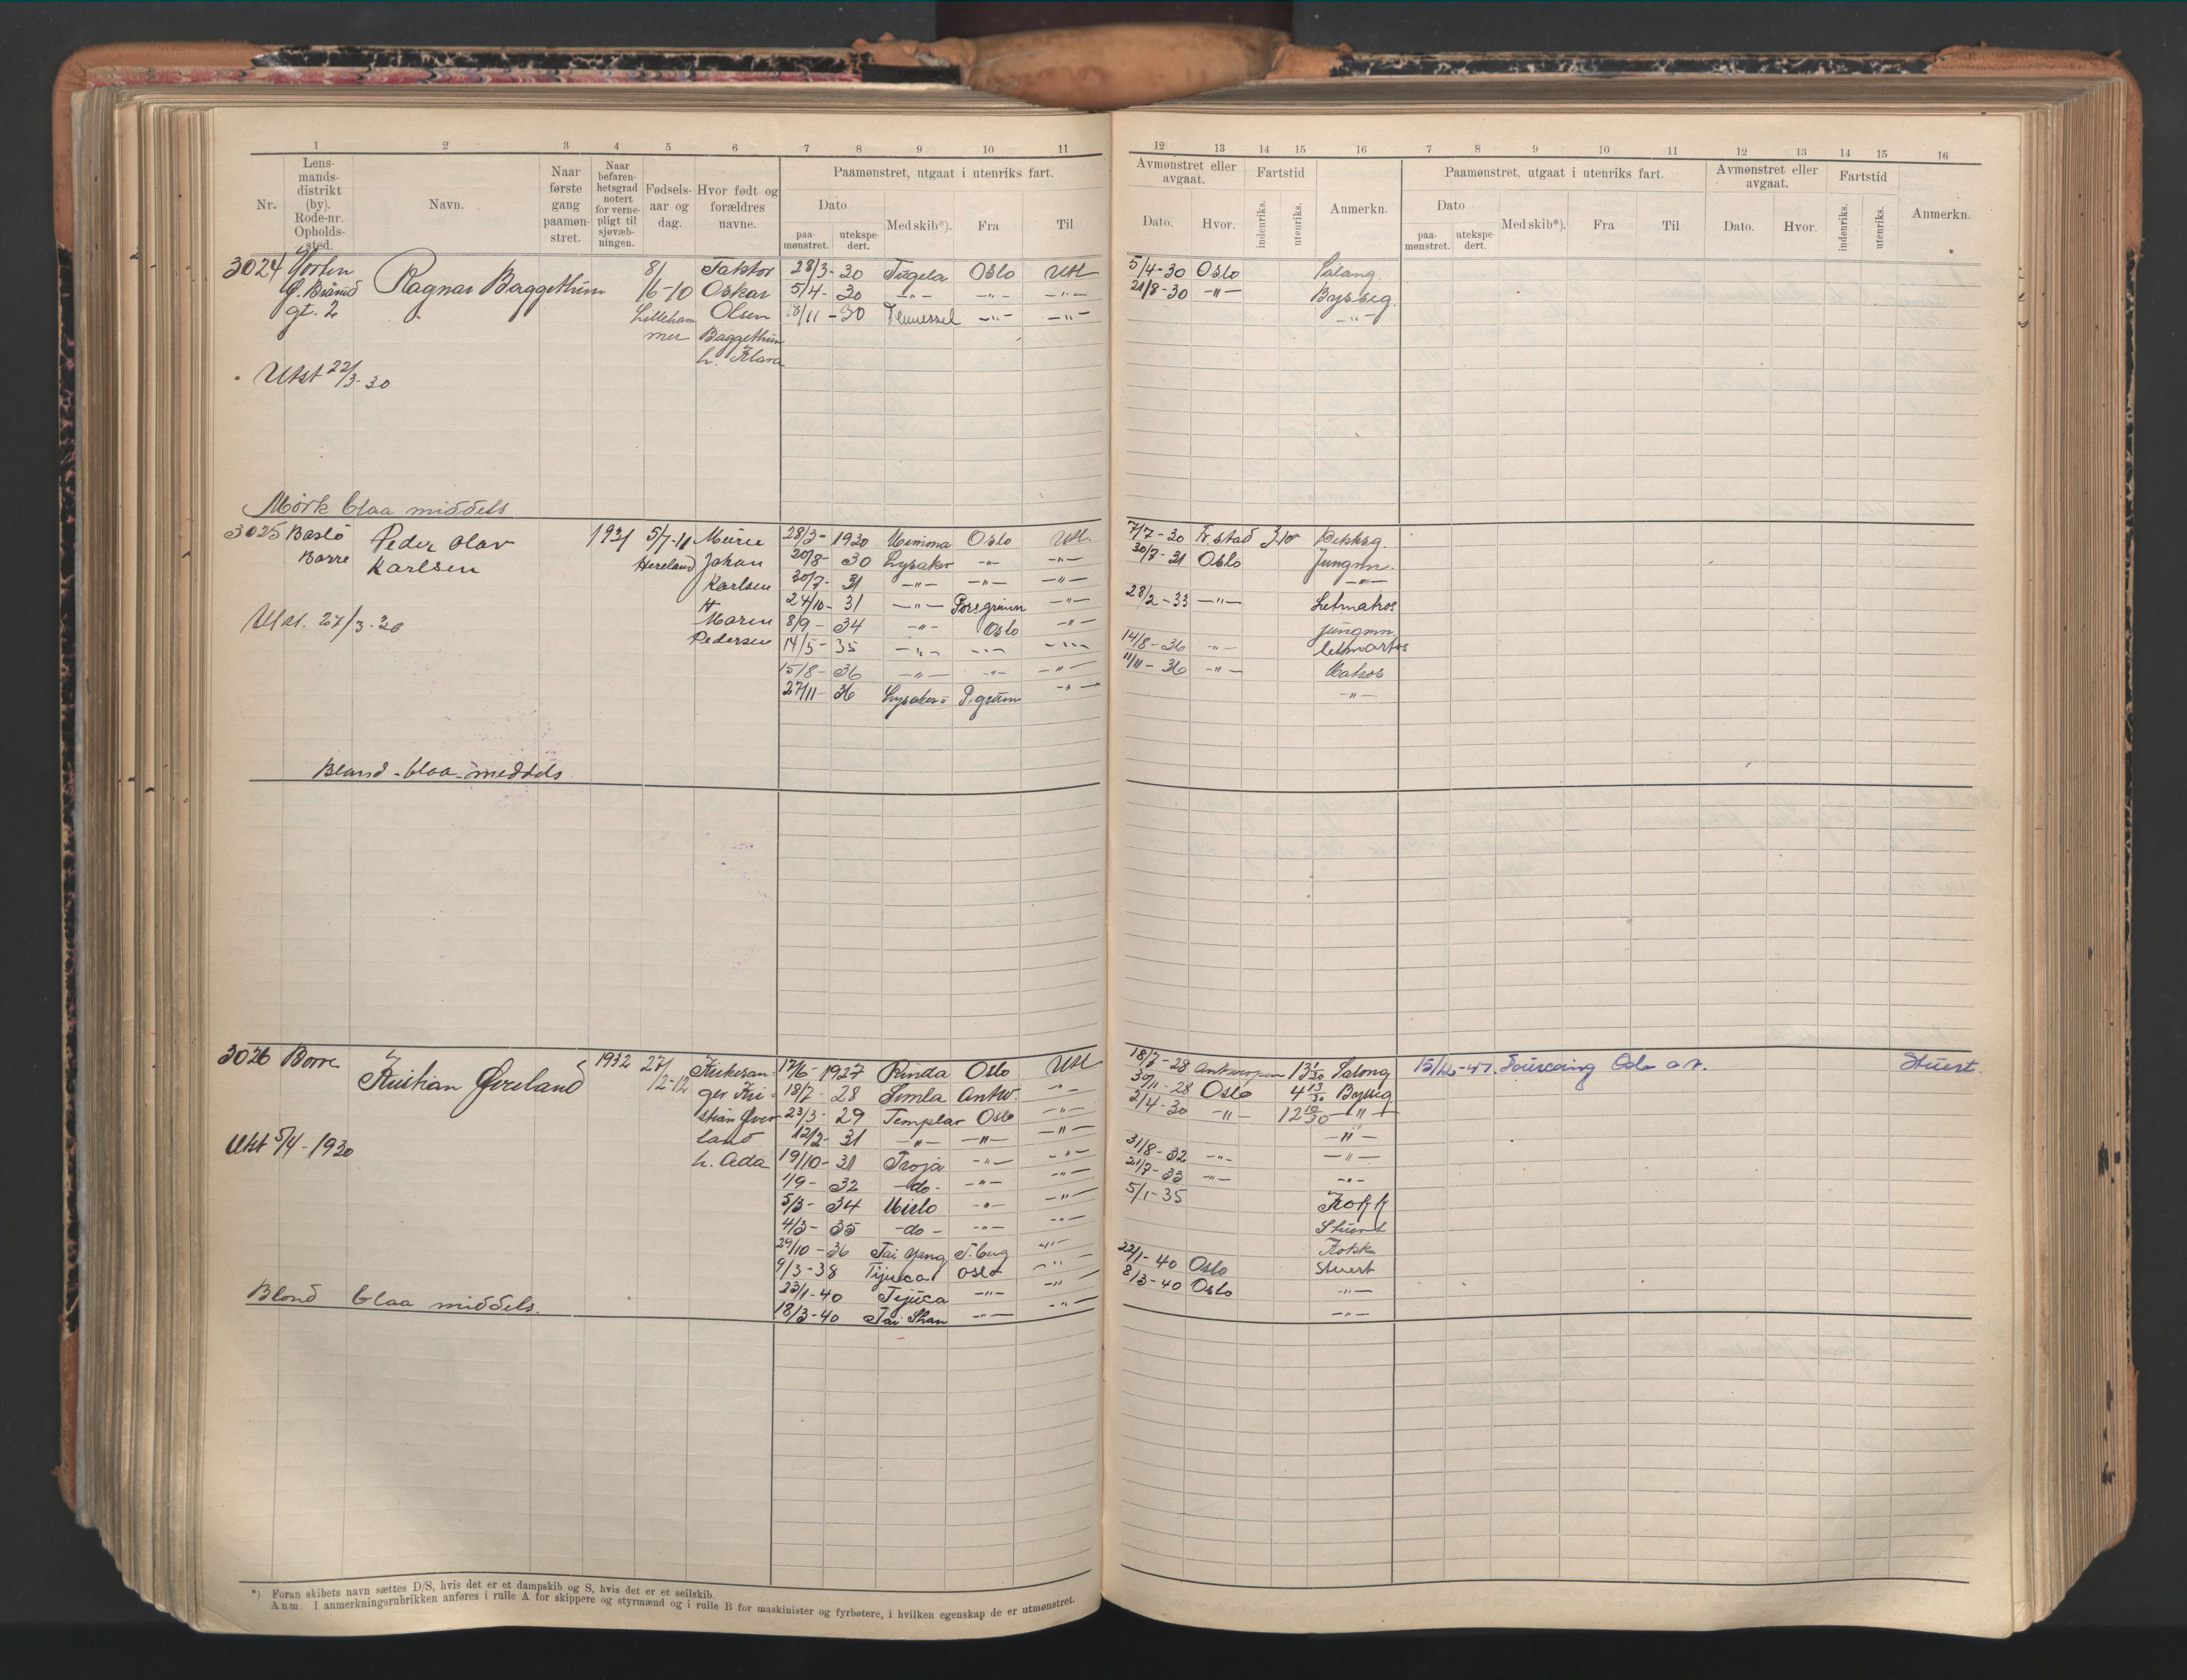 1 2 3 4 5 6 7 8 9 10 11
Nr. Lens-mands-distrikt (by). Rode-nr. Opholds-sted. Navn. Naar første gang paamøn-stret. Naar befaren-hetsgrad notert for verne-pligt til sjøvæb-ningen. Fødsels-aar og dag. Hvor født og forældres navne. Paamønstret, utgaat i utenriks fart.
Dato Med skib*). Fra Til
paa-mønstret. utekspe-dert.
3024 Horten Ragnar Baggethun 8/ Faktor 28/3-30 Tugela Oslo Utl
gt. 2 /6-10 Oskar 5/4-30 -"- -"- -"-
Lilleham Olsen 18/11-30 -"- -"-
mer Baggethun
h. Klara
Utst 22/3-30
Mörk blaa middels
3025 Basto Peder Olav 1931 5/7-11 Murer 28/3-1930 Mimona Oslo Utl.
Borre Karlsen Johan 20/8-30 Lysaker -"- -"-
Karlsen 30/7-31 -"- -"- -"-
H 24/10-31 -"- Porsgrunn -"-
Utst. 27/3-30 Maren 8/9-34 -"- Oslo -"-
Pedersen 14/5-35 -"- -"- -"-
15/8-36 -"- -"- -"-
27/11-36 Lysaker P.grunn -"-
Bland-blaa-meddels
3026 Borre Kristian Øveland 1932 27/ 17/6-1927 Rinda Oslo Utl
/2-12 ger Kri- 18/7-28 Simla Antw. -"-
stian Øver 23/3-29 Templar Oslo -"-
land 12/2-31 -"- -"- -"-
Utst 5/4-1930 h. Ada 19/10-31 Troja -"- -"-
1/9-32 -do- -"- -"-
5/3-34 -"- -"-
4/3-35 -do- -"- -"-
29/10-36 Tai Yang T.berg -"-
9/3-38 Tijuca Oslo -"-
23/1-40 Tijuca -"- -"-
Blond blaa middels. 18/3-40 Tai Shan -"- -"-
*) Foran skibets navn sættes D/S, hvis det er et dampskib og S, hvis det er et seilskib.
Anm. I anmerkningsrubrikken anføres i rulle A for skippere og styrmænd og i rulle B for maskinister og fyrbøtere, i hvilken egenskap de er utmønstret.
12 13 14 15 16 7 8 9 10 11 12 13 14 15 16
Avmønstret eller avgaat. Fartstid Anmerkn. Paamønstret, utgaat i utenriks fart. Avmønstret eller avgaat. Fartstid Anmerkn.
Dato. Hvor. indenriks. utenriks. Dato Med skib*). Fra Til Dato. Hvor. indenriks. utenriks.
paa-mønstret. utekspe-dert.
5/4-30 Oslo Salong.
21/8-30 -"- Bysseg.
-"-
7/7-30 Fr.stad Dekksg.
30/7-31 Oslo Jungm.
-"-
28/2-33 -"- Letmatros
jungmn.
14/8-36 -"- letmatros
11/11-36 -"- Matros
-"-
18/7-28 Antwerpen 13 1/30 Salong 15/12-47. Oslo Stuert.
30/11-28 Oslo 4 13/30 Bysseg.
2/4-30 -"- 12 10/30 -"-
-"-
31/8-32 -"- -"-
21/7-33 -"- -"-
5/1-35 Kokk
Stuert
Kokk
22/1-40 Oslo Stuert
8/3-40 Oslo -"-
-"-